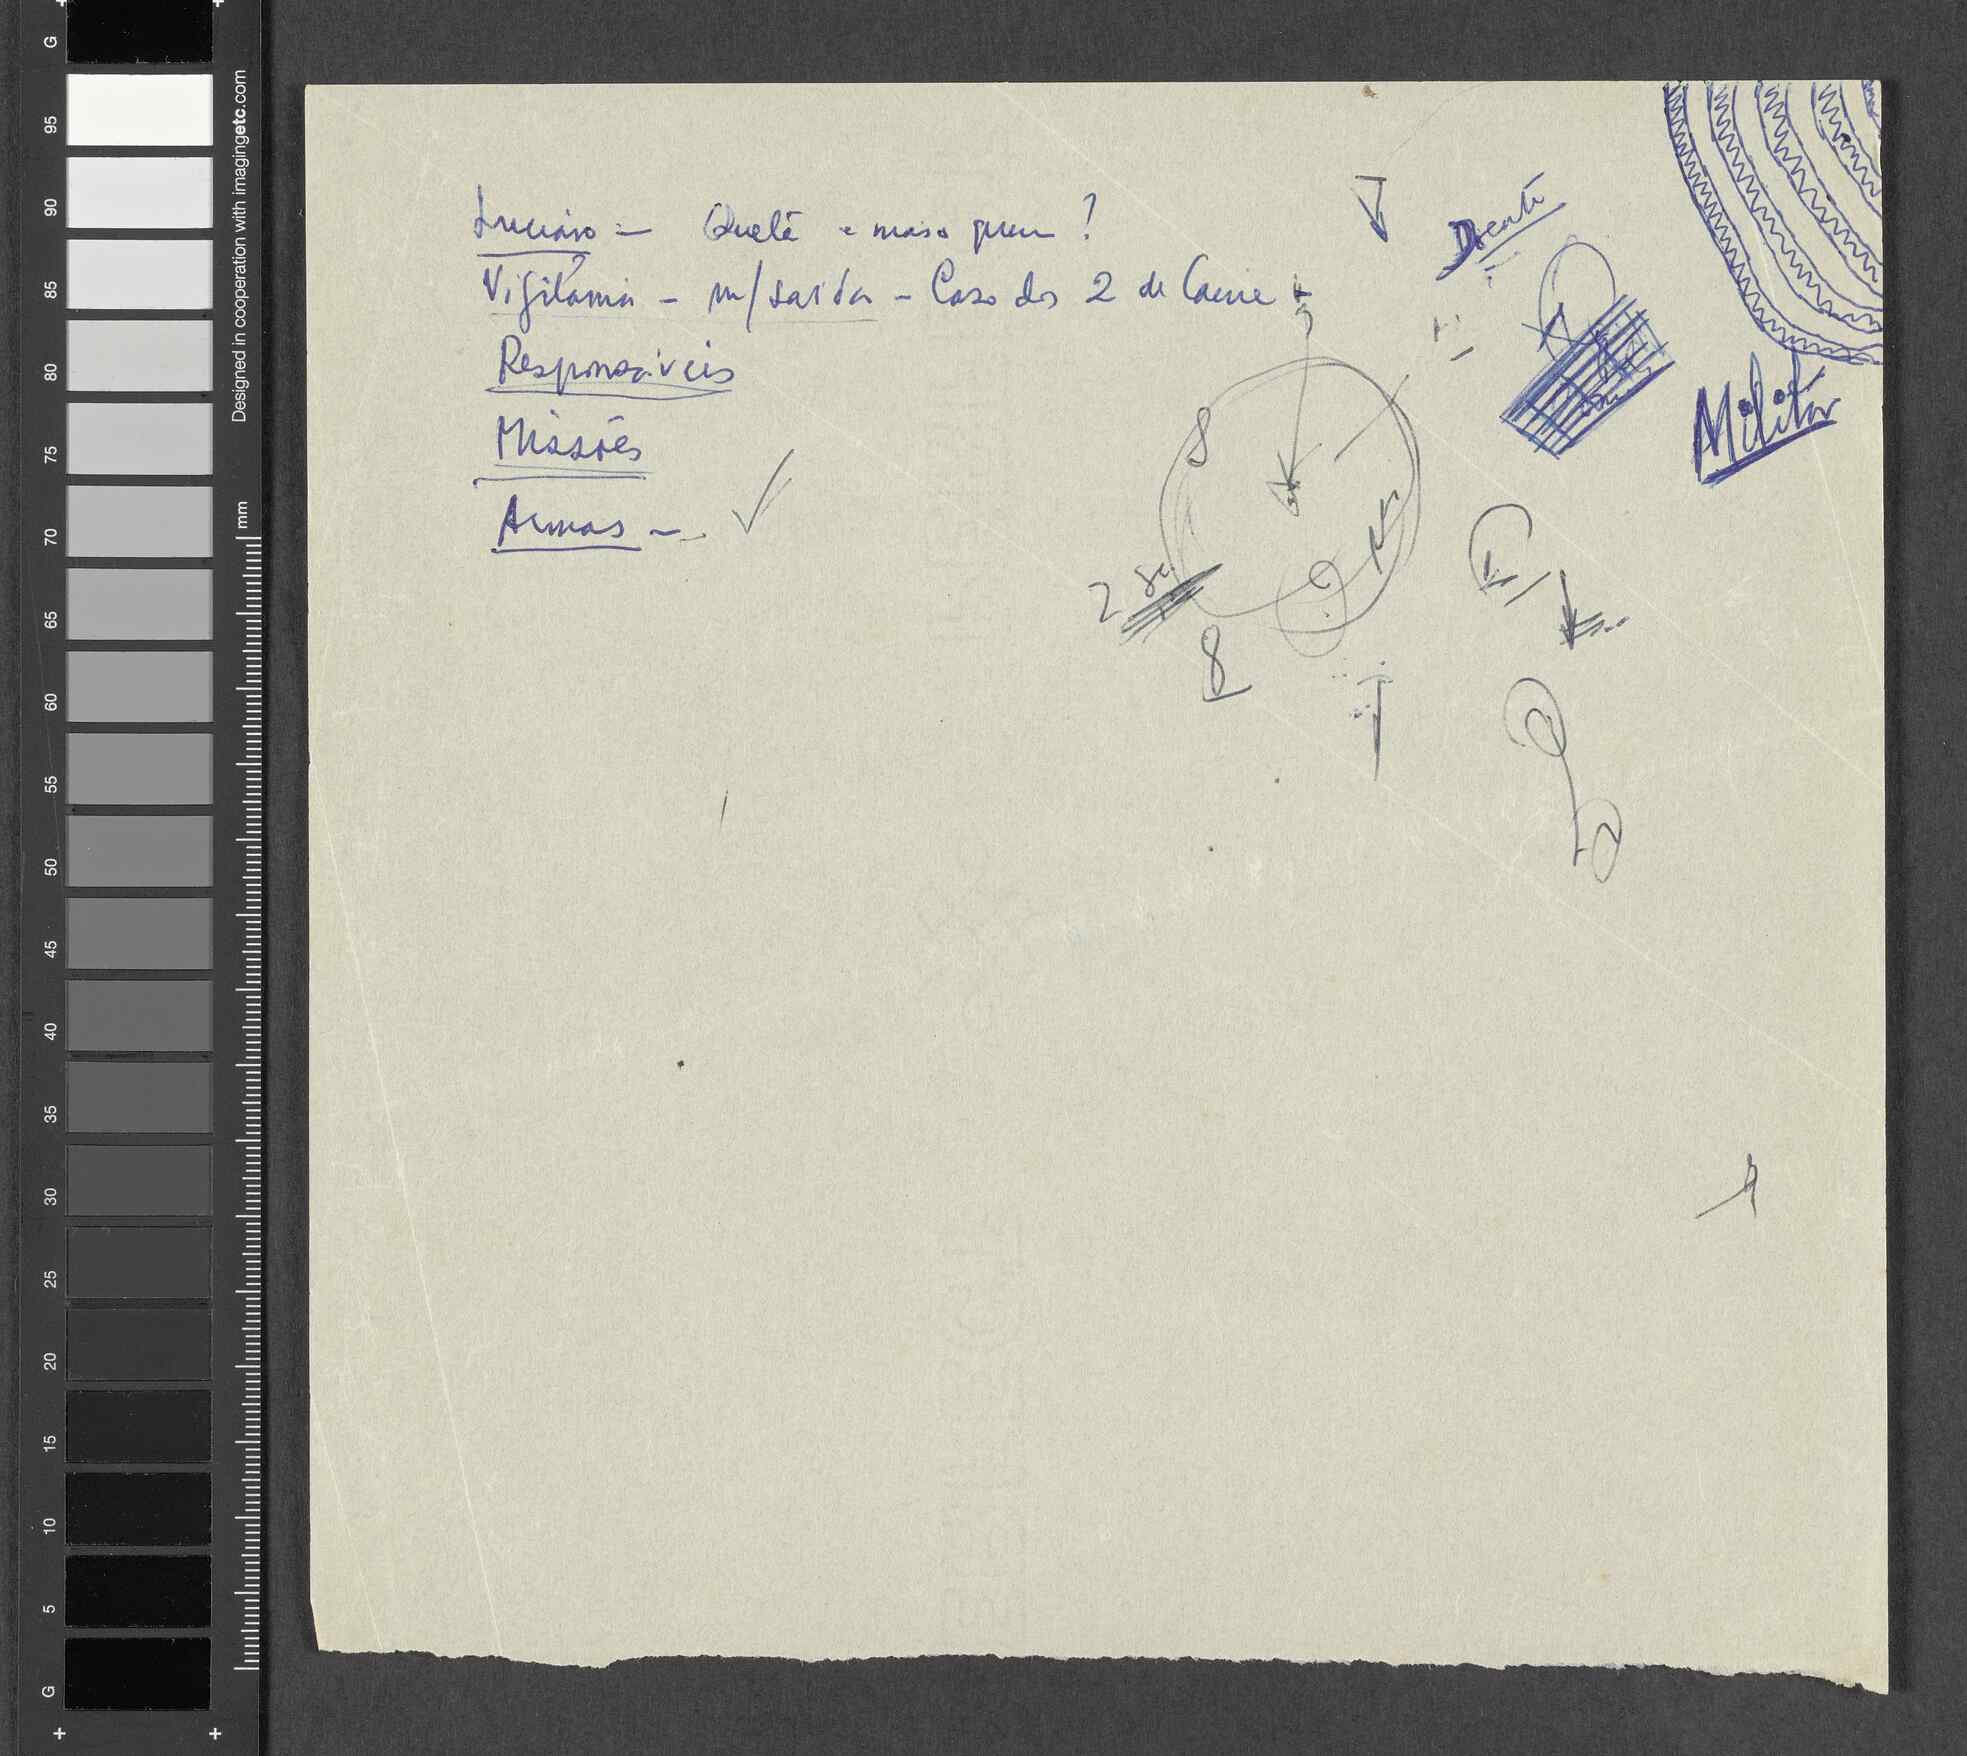 Luciano - Quetá e mais quem?
Vigilância - m/saída - Caso dos 2 de
Responsáveis
Missões
Armas -
Militar
8
2
8
Designed in cooperation with imagingetc.com
mm
G
95
90
85
80
75
70
65
60
55
50
45
40
35
30
25
20
15
10
5
G